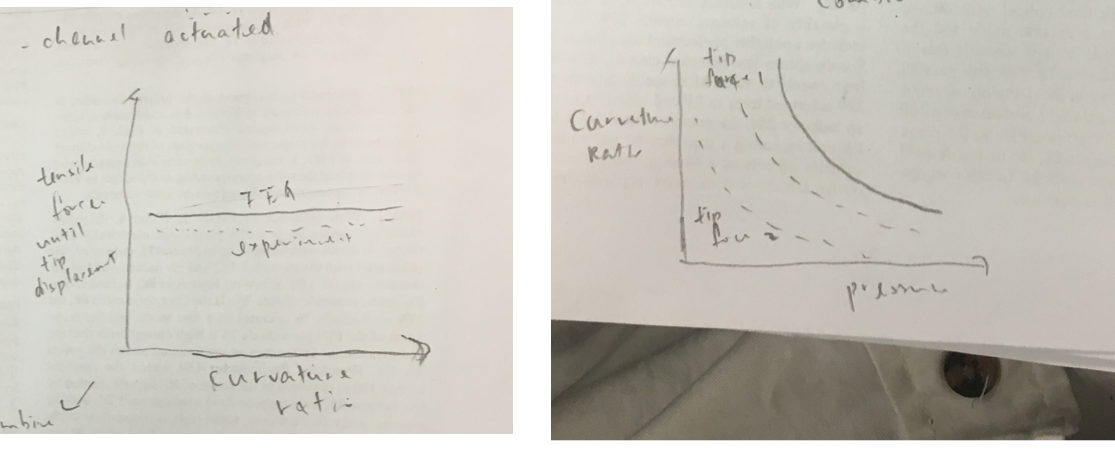 - channel actuated
tensile
force
until
tip
displacement
FEA
experiment
curvature
ratio
tip
force 1
Curvature
Ratio
tip
force 2
pressure